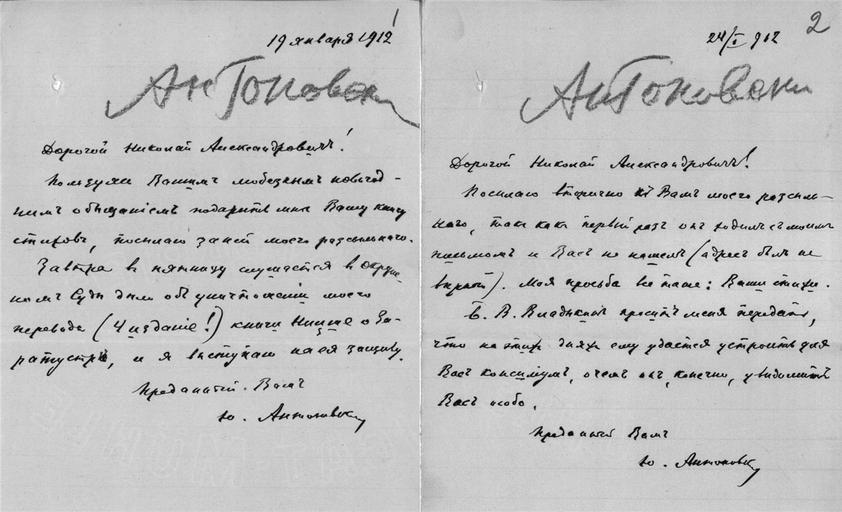 1
19 января 1912
Антоновски
Дорогой Николай Александровичъ!
Пользуясь Вашимъ любезнымъ новогод-
нимъ обѣщаніемъ подарить мнѣ Вашу книгу
стиховъ, посылаю за ней моего разсыльнаго.
Завтра въ пятницу слушается въ Окруж-
номъ Судѣ дѣло объ уничтоженіи моего
перевода (4 изданіе!) книги Ницше о За-
ратустрѣ, и я выступаю на ея защиту.
Преданный Вамъ
Ю. Антоновскій
2
24/I 912
Антоновски
Дорогой Николай Александровичъ!
Посылаю вторично къ Вамъ моего разсыль-
наго, такъ какъ первый разъ онъ ходилъ съ моимъ
письмомъ и Васъ не нашелъ (адресъ былъ не
вѣрный). Моя просьба все та же: Ваши стихи.
В. В. проситъ меня передать,
что на этихъ дняхъ ему удастся устроить для
Васъ консиліумъ, о чемъ онъ, конечно, увѣдомитъ
Васъ особо.
Преданный Вамъ
Ю. Антоновскій